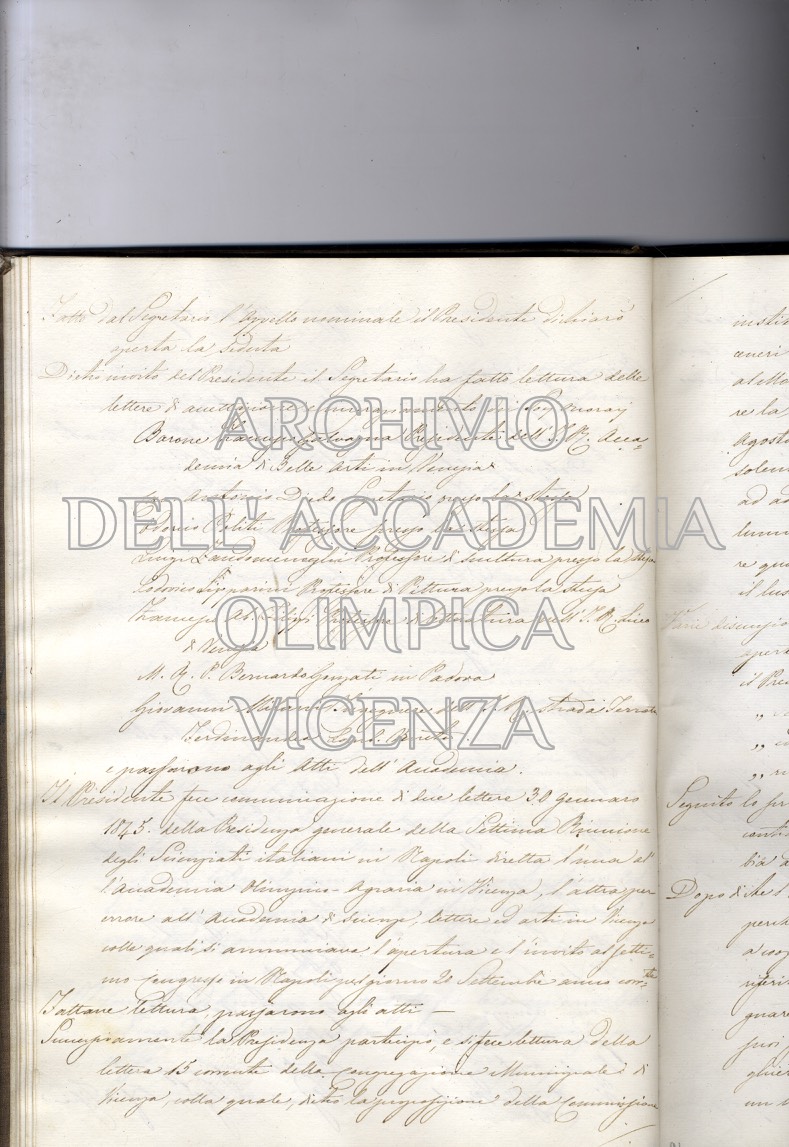 Fatto dal Segretario l'Appello nominale il Presidente dichiarò
aperta la seduta
Dietro invito del Presidente il Segretario ha fatto lettura delle
lettere di accettazione e
ARCHIVIO
Barone Galvagna Presidente dell' I. R. Acca=
demia di Belle Arti in Venezia
Antonio Diedo Segretario presso la stessa
DELL' ACCADEMIA
Professore presso la stessa
Luigi Zandomeneghi Professore di Scultura presso la stessa
Lodovico Lipparini Professore di Pittura presso la stessa
OLIMPICA
Francesco Ab. Professore di letteratura nell' I. R. Liceo
di Venezia
M. R. P. Bernardo Gonzati in Padova
Giovanni Milani Ingegnere dell' I. R. Strada Ferrata
VICENZA
Ferdinandea Lomb. Veneta
e passarono agli Atti dell' Accademia.
Il Presidente fece comunicazione di due lettere 30 Gennaro
1845. della Presidenza generale della Settima Riunione
degli Scienziati italiani in Napoli diretta l'una al=
l'Accademia Olimpico-Agraria in Vicenza, l'altra per
errore all' Accademia di scienze, lettere ed arti in Vicenza
colle quali si annunciava l'apertura e l'invito al setti=
mo Congresso in Napoli pel giorno 20 Settembre anno corr.te
Fattane lettura, passarono agli atti —
Successivamente la Presidenza partecipò, e si fece lettura della
lettera 15 corrente della Congregazione Municipale di
Vicenza, colla quale, dietro la proposizione della Commissione
re la
Agosto
ad
re qu
il lus
Varie discussio
aper
il Pre
Seguito lo
contr
Dopo di che
perch
riferi
un